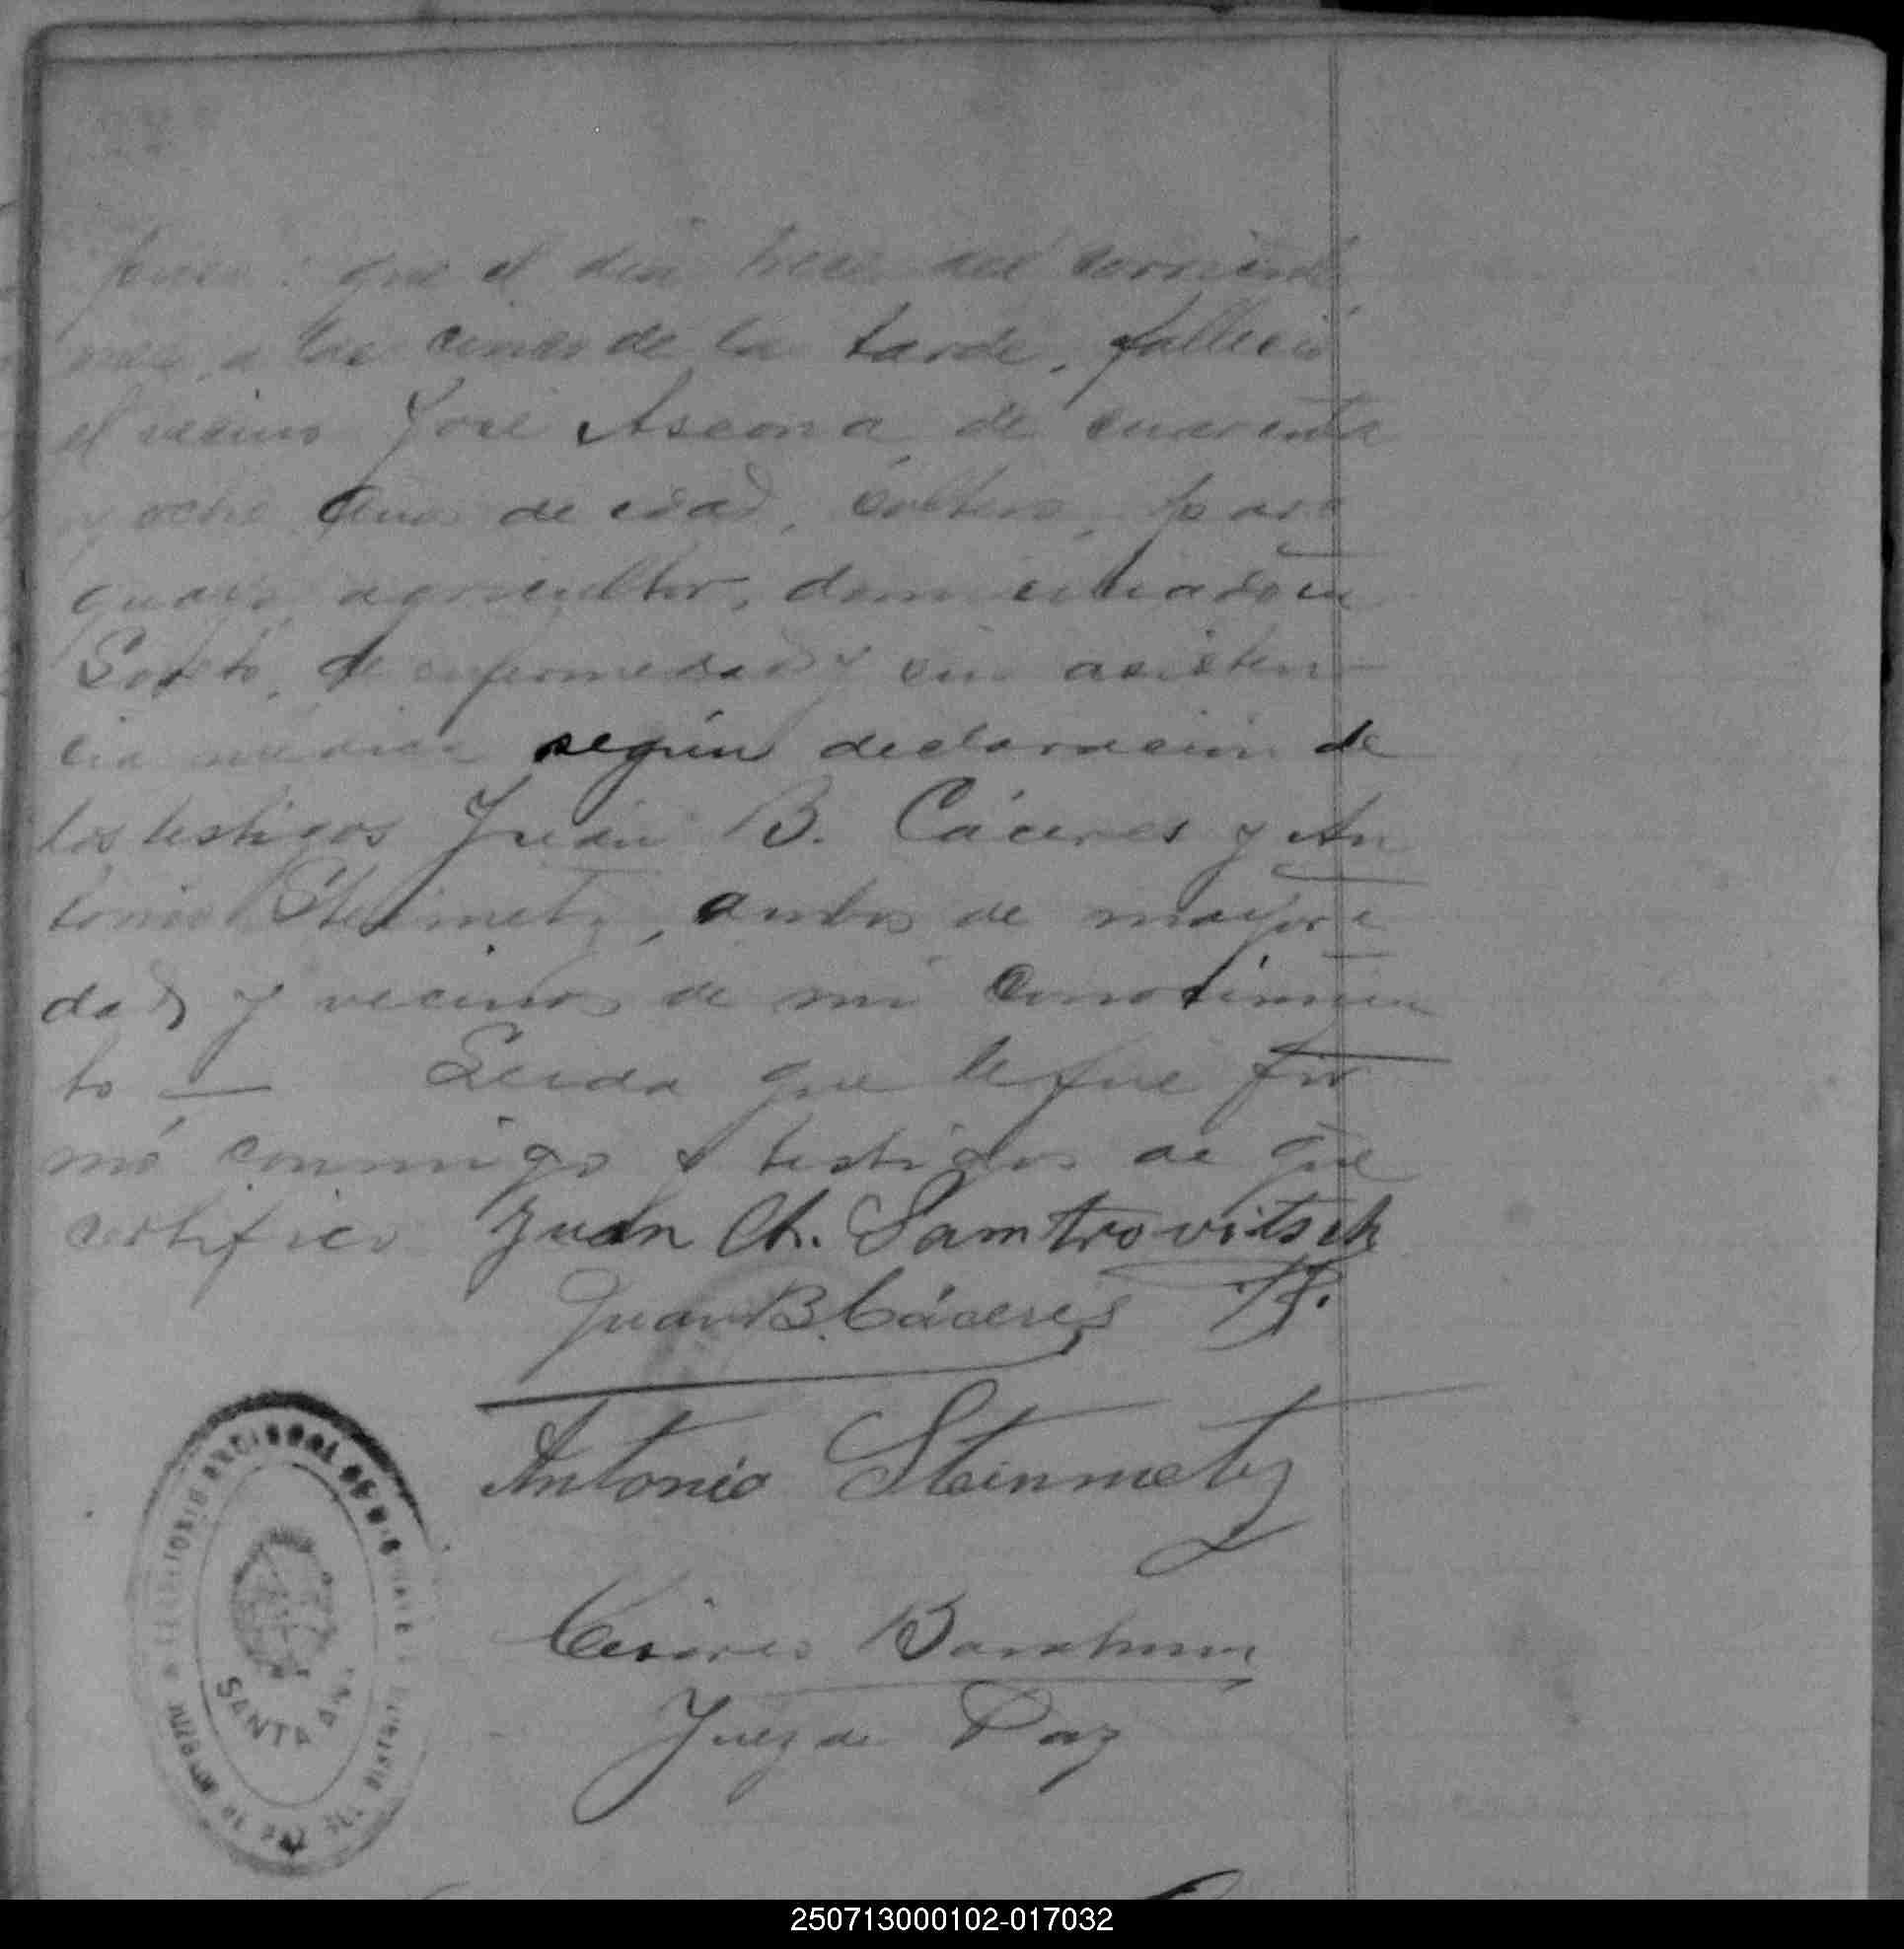 que el dia trece del corriente
mes, a las cinco de la tarde, falleció
el vecino José Ascona, de cuarenta
y ocho años de edad, soltero, para
guayo, agricultor, domiciliado en
Loreto, de enfermedad y sin asisten-
cia médica según declaración de
los testigos Juan B. Cáceres y An
tonio Steinmetz, ambos de mayor e
dad y vecinos de mi conocimien
to — Leida que le fue fir
mó conmigo y testigos de que
certifico Juan Ch. Samtrovitsch
Juan B. Cáceres
Antonio Steinmetz
Juez de Paz
SANTA ANA
250713000102-017032